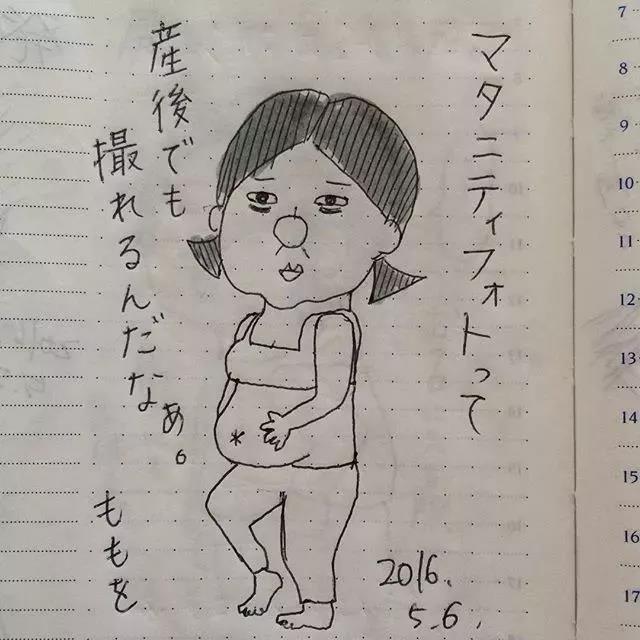 マタニティフォトって
産後でも
撮れるんだなあ。
ももを
2016.
5.6.
7
8
9
10
11
12
13
14
15
16
17